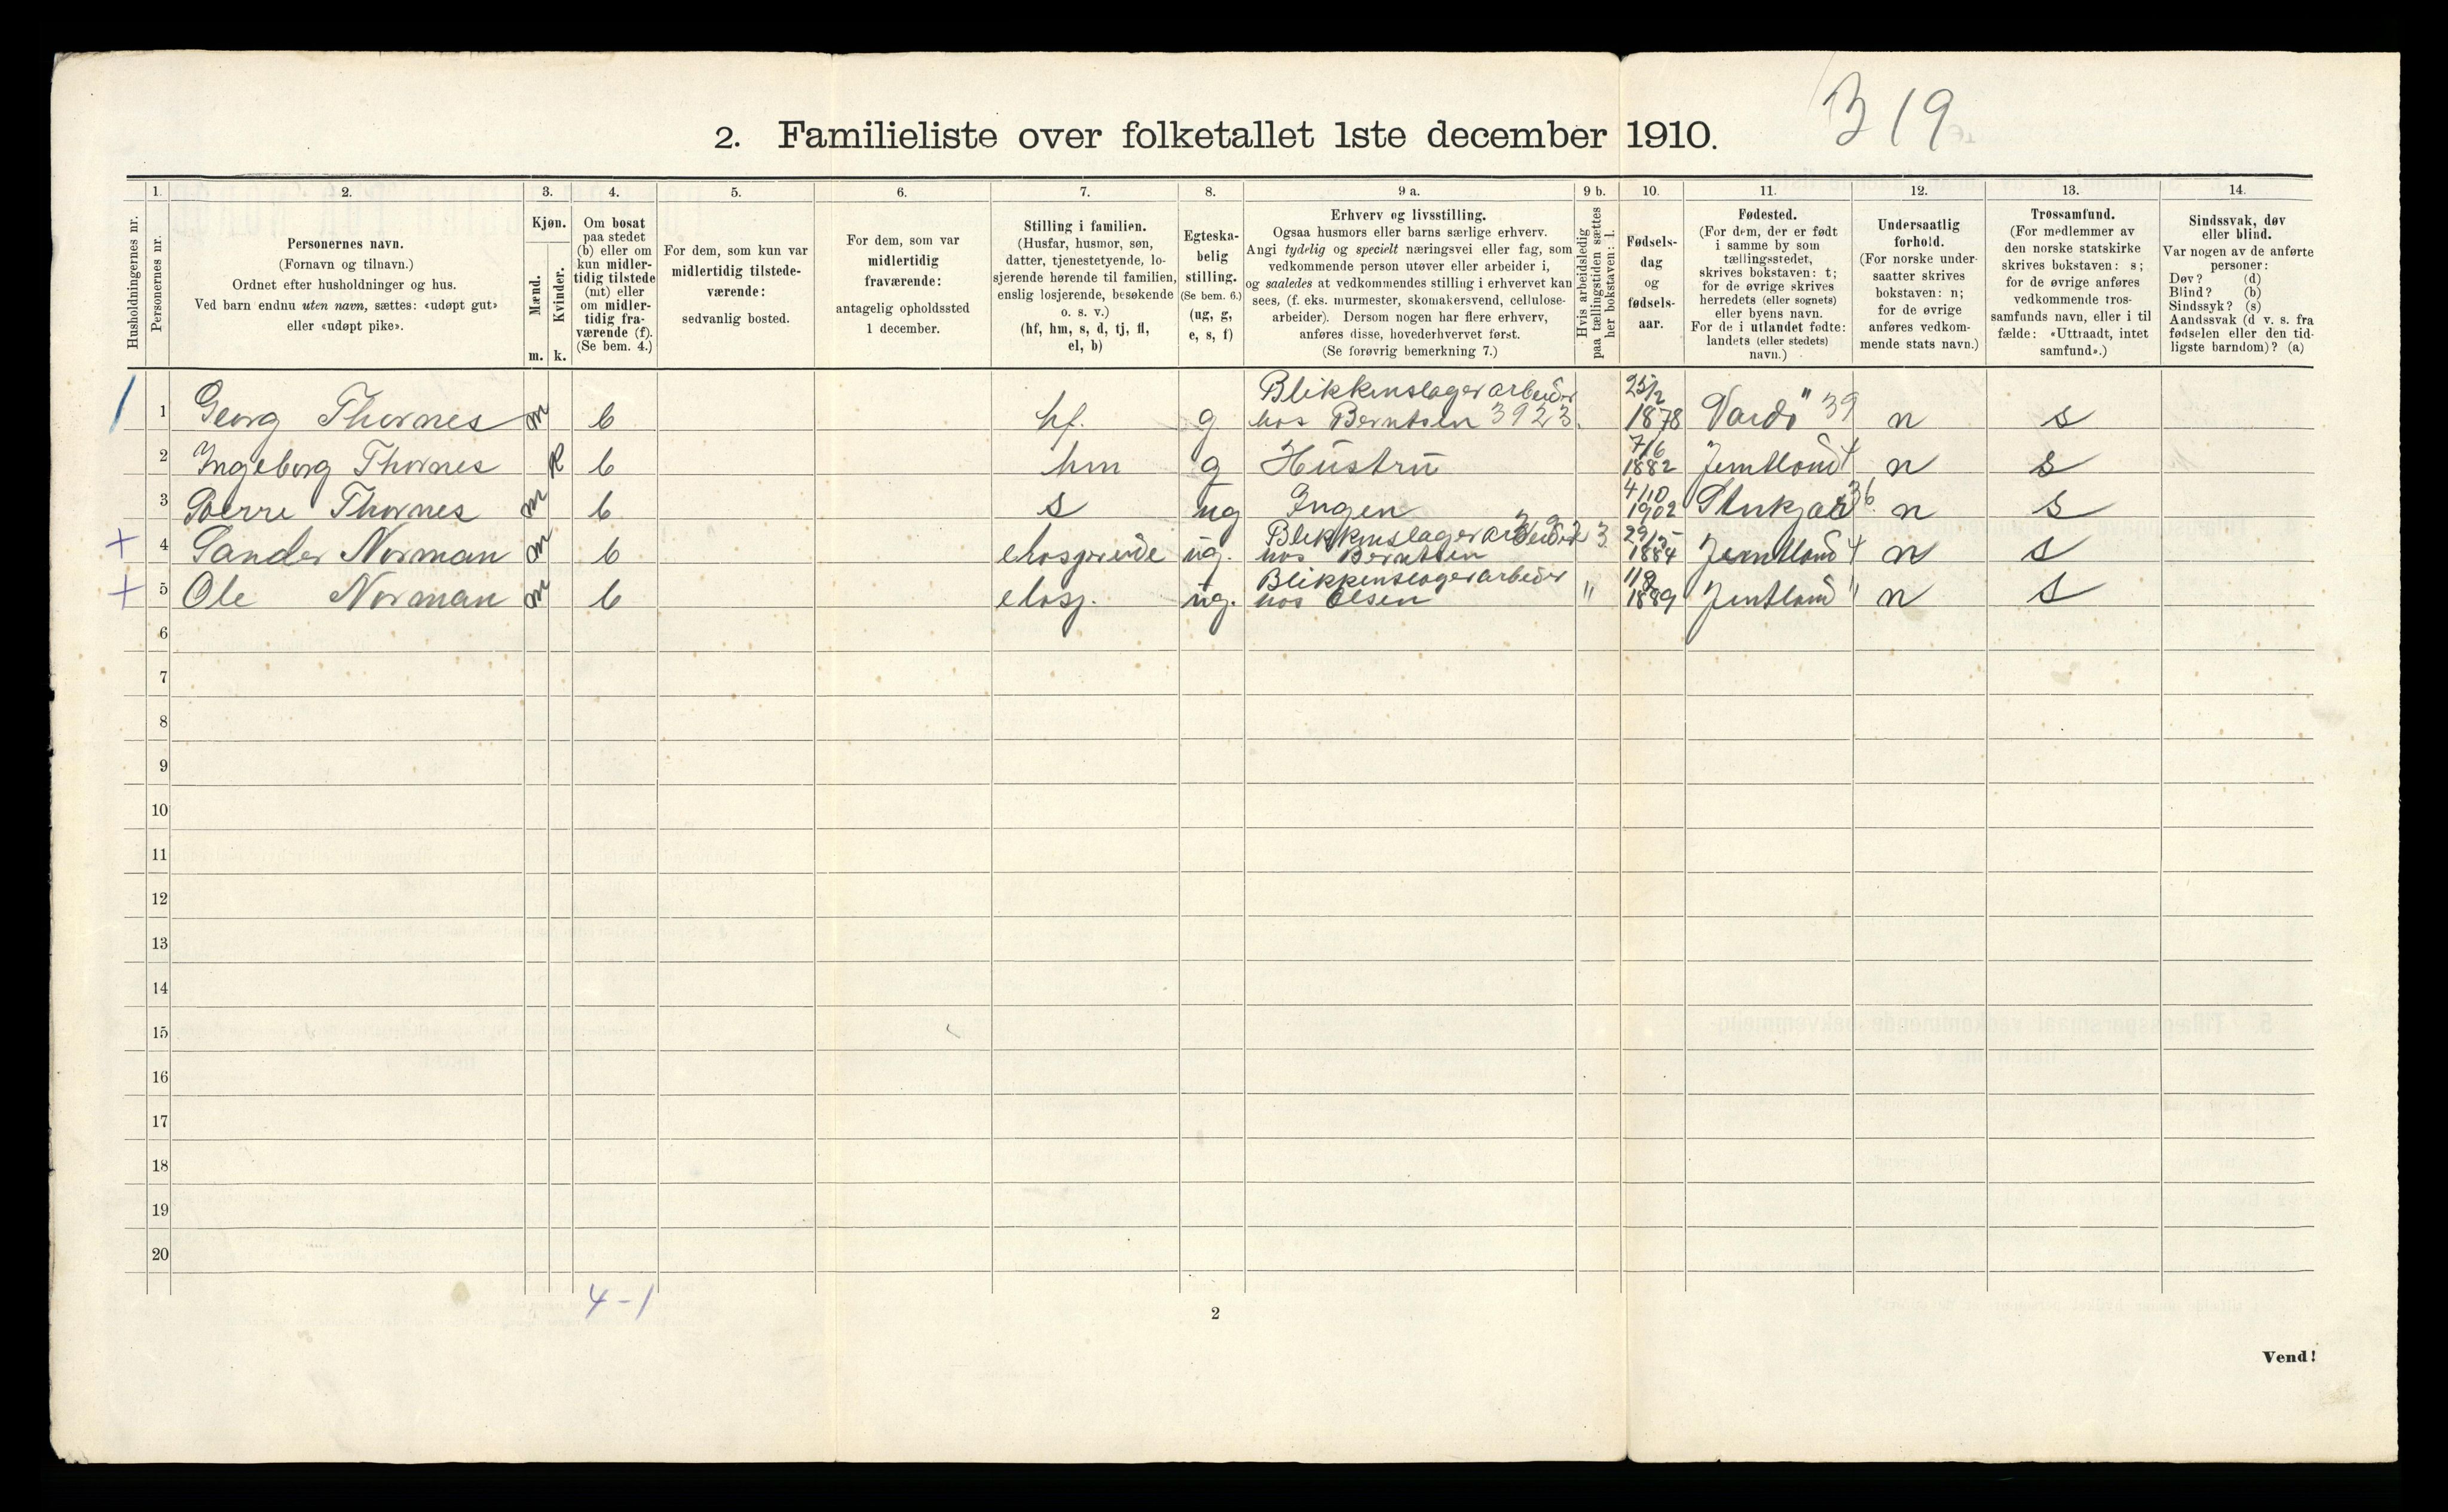 319
2. Familieliste over folketallet 1ste december 1910.
Husholdningernes nr.
1. Personernes nr.
2. Personernes navn.
(Fornavn og tilnavn.)
Ordnet efter husholdninger og hus.
Ved barn endnu uten navn, sættes: «udøpt gut»
eller «udøpt pike».
3. Kjøn.
Mænd. m.
Kvinder. k.
4. Om bosat
paa stedet
(b) eller om
kun midler-
tidig tilstede
(mt) eller
om midler-
tidig fra-
værende (f).
(Se bem. 4.)
5. For dem, som kun var
midlertidig tilstede-
værende:
sedvanlig bosted.
6. For dem, som var
midlertidig
fraværende:
antagelig opholdssted
1 december.
7. Stilling i familien.
(Husfar, husmor, søn,
datter, tjenestetyende, lo-
sjerende hørende til familien,
enslig losjerende, besøkende
o. s. v.)
(hf, hm, s, d, tj, fl,
el, b)
8. Egteska-
belig
stilling.
(Se bem. 6.)
(ug, g,
e, s, f)
9 a. Erhverv og livsstilling.
Ogsaa husmors eller barns særlige erhverv.
Angi tydelig og specielt næringsvei eller fag, som
vedkommende person utøver eller arbeider i,
og saaledes at vedkommendes stilling i erhvervet kan
sees, (f. eks. murmester, skomakersvend, cellulose-
arbeider). Dersom nogen har flere erhverv,
anføres disse, hovederhvervet først.
(Se forøvrig bemerkning 7.)
9 b. Hvis arbeidsledig
paa tællingstiden sættes
her bokstaven: l.
10. Fødsels-
dag
og
fødsels-
aar.
11. Fødested.
(For dem, der er født
i samme by som
tællingsstedet,
skrives bokstaven: t;
for de øvrige skrives
herredets (eller sognets)
eller byens navn.
For de i utlandet fødte:
landets (eller stedets)
navn.)
12. Undersaatlig
forhold.
(For norske under-
saatter skrives
bokstaven: n;
for de øvrige
anføres vedkom-
mende stats navn.)
13. Trossamfund.
(For medlemmer av
den norske statskirke
skrives bokstaven: s;
for de øvrige anføres
vedkommende tros-
samfunds navn, eller i til
fælde: «Uttraadt, intet
samfund».)
14. Sindssvak, døv
eller blind.
Var nogen av de anførte
personer:
Døv? (d)
Blind? (b)
Sindssyk? (s)
Aandssvak (d v. s. fra
fødselen eller den tid-
ligste barndom)? (a)
1 Georg Thornes m b hf. g Blikkenslagerarbeider
hos Berntsen 3923. 25/2 1878 Vardö 39 n s
2 Ingeborg Thornes k b hm g Hustru 7/6 1882 Jemtland 4 n s
3 Thornes m b s ug Ingen 4/10 1902 36 n s
+ 4 Sander Norman m b elosjerende ug. Blikkenslagerarbeider
hos Berntsen 3 1884 Jemtland 4 n s
+ 5 Ole Norman m b elosj. ug. Blikkenslagerarbeider
hos Olsen " 1889 Jemtland " n s
6
7
8
9
10
11
12
13
14
15
16
17
18
19
20
4-1
2
Vend!